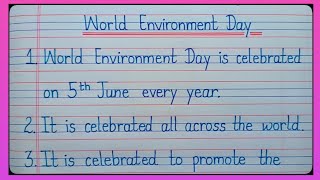 World Environment Day
1. World Environment Day is celebrated
on 5th June every year.
2. It is celebrated all across the world.
3. It is celebrated to promote the